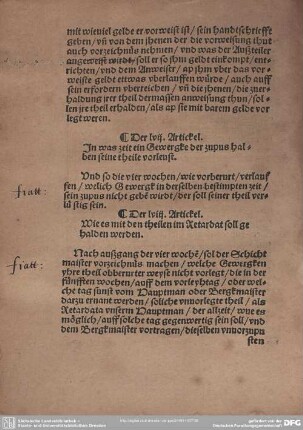 mit wieuiel gelde er vorweist ist / sein handtschriefft
geben / vñ von dem jhenen der die vorweisung thut
auch vorzeichnüs nehmen / vnd was der Außteiler
angeweist wirdt / soll er so jhm geldt einkompt / ent-
richten / vnd dem Anweiser / ap jhm vber das vor-
weiste geldt ettwas vberlauffen würde / auch auff
sein erfordern vberreichen / vñ die jhenen / die zuer-
haldung jrer theil dermassen anweisung thun / sol-
len jre theil erhalden / als ap sie mit barem gelde vor
legt weren.
¶ Der lvij. Artickel.
In was zeit ein Gewergke der zupus hal-
ben seine theile vorleust.
Vnd so die vier wochen / wie vorberurt / verlauf
fen / welich Gewergk in derselben bestimpten zeit /
fratt: sein zupus nicht gebē wirdt / der soll seiner theil ver-
lüstig sein.
¶ Der lviij. Artickel.
Wie es mit den theilen im Retardat soll ge
halden werden.
Nach außgang der vier wochē / sol der Schicht
fratt: maister vorzeichnüs machen / welche Gewergken
yhre theil obberurter weyse nicht vorlegt / die in der
fünfften wochen / auff dem vorleyhtag / oder wel-
che tag sunst vom Hauptman oder Bergkmaister
dartzu ernant werden / soliche vnuorlegte theil / als
Retardata vnserm Hauptman / der alltzeit / wue es
möglich / auff soliche tag gegenwertig sein soll / vnd
dem Bergkmaister vortragen / dieselben vnuorzupu
sten